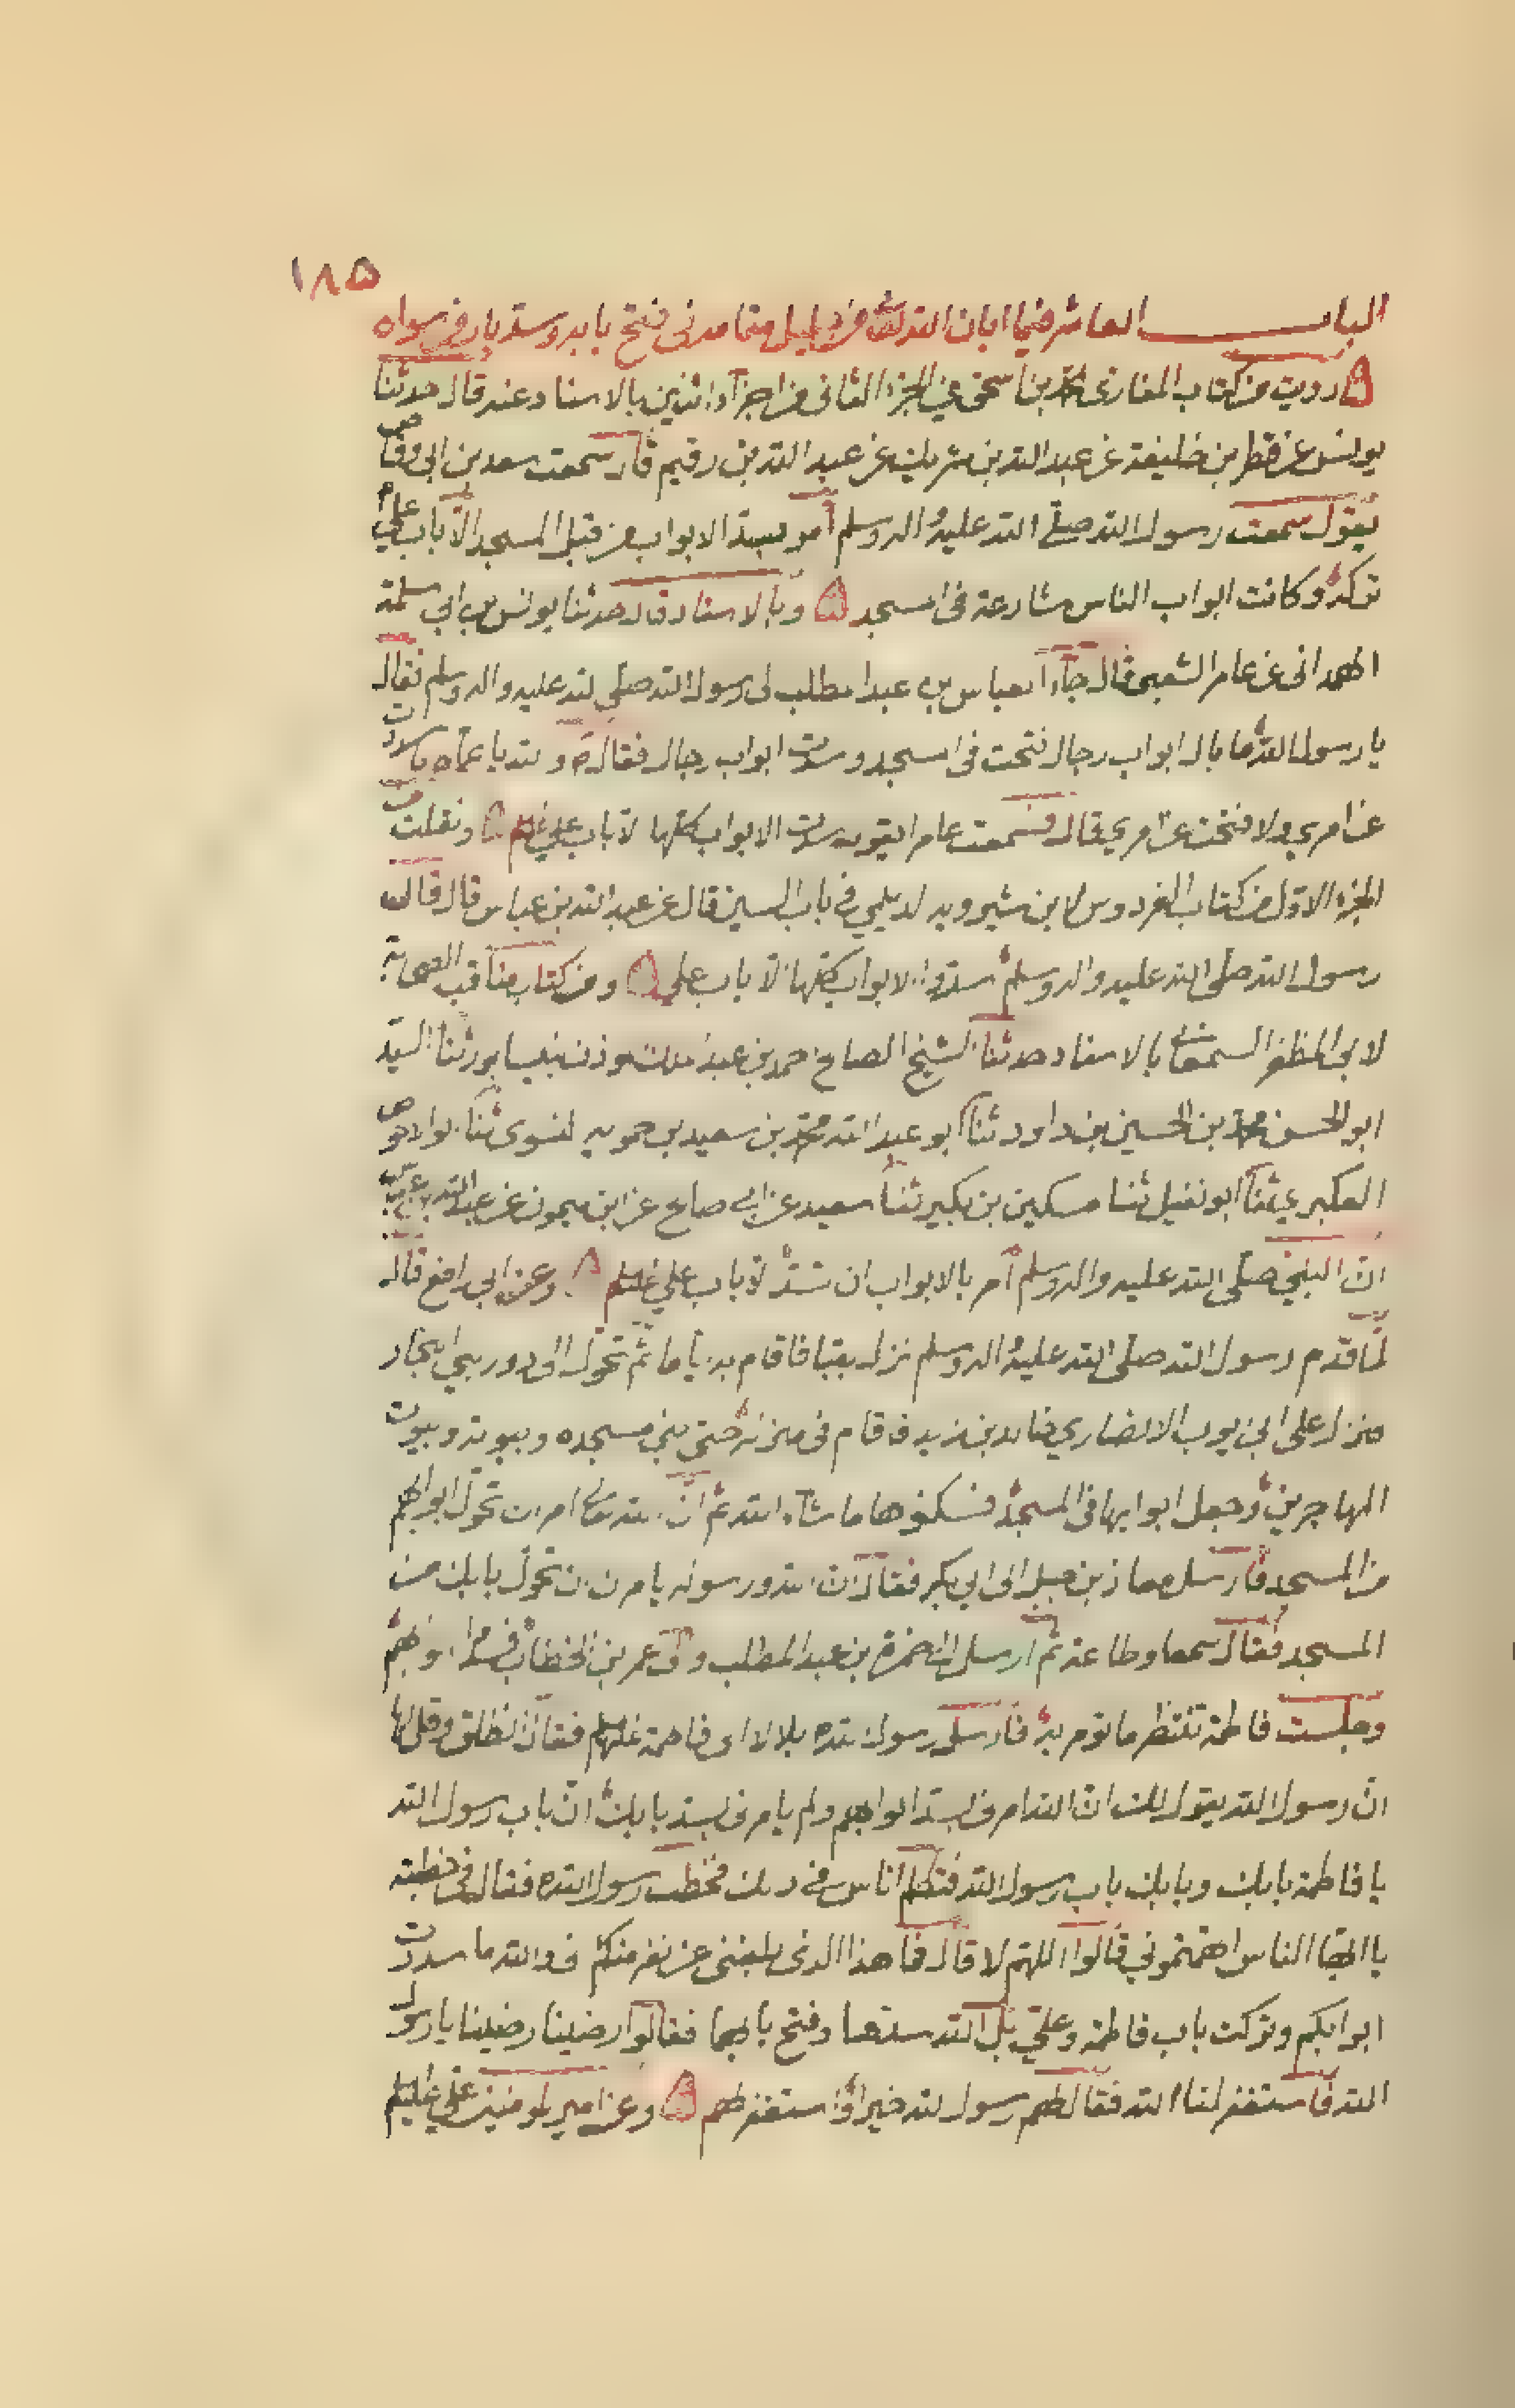 ١٨٥
الباب العاشر فيما ابان الله تعالى من جليل مقامه في فتح بابه وسد باب من سواه
رويت من كتاب المغازي محمد بن اسحق في الجزء الثاني من اجزاء اثنين بالاسناد عنه قال حدثنا
يونس عن فطر بن خليفة عن عبد الله بن شريك عن عبد الله بن رقيم قال سمعت سعد بن ابي وقاص
يقول سمعت رسول الله صلى الله عليه واله وسلم امر بسد الابواب من قبل المسجد الا باب علي
تركه وكانت ابواب الناس شارعة في المسجد وبالاسناد قال حدثنا يونس عن ابي سلمة
الهمداني عن عامر الشعبي قال جاء العباس بن عبد المطلب الى رسول الله صلى الله عليه واله وسلم فقال
يا رسول الله ما بال ابواب رجال فتحت في المسجد وسدت ابواب رجال فقال والله يا عماه ما سددت
عن امري ولا فتحت عن امري قال فسمعت عامرا يقول سدت الابواب كلها الا باب علي ونقلت من
الجزء الاول من كتاب الفردوس لابن شيرويه الديلمي في باب السين قال عن عبد الله بن عباس قال قال
رسول الله صلى الله عليه واله وسلم سدوا الابواب كلها الا باب علي ومن كتاب مناقب الصحابة
لابي المظفر السمعاني بالاسناد حدثنا الشيخ الصالح احمد بن عبد الملك موذن نيسابور ثنا السيد
ابو الحسن محمد بن الحسين بن داود ثنا ابو عبد الله محمد بن سعيد بن حمويه النسوي ثنا ابو الاحوص
العكبري ثنا ابو نفيل ثنا مسكين بن بكير ثنا سعيد عن ابي صالح عن ابن ميمون عن عبد الله بن عباس
ان النبي صلى الله عليه واله وسلم امر بالابواب ان تسد الا باب علي وعن ابي رافع قال
لما قدم رسول الله صلى الله عليه واله وسلم نزل بقبا فاقام به اياما ثم تحول الى دور بني النجار
منزل على ابي ايوب الانصاري خالد بن زيد فاقام في منزله حتى بني مسجده وبيوته وبيوت
المهاجرين وجعل ابوابها في المسجد فسكنوها ما شاء الله ثم ان الله تعالى امر ان تحول ابوابهم
من المسجد فارسل معاذ بن جبل الى ابي بكر فقال ان الله ورسوله يامرن ان تحول بابك من
المسجد فقال سمعا وطاعة ثم ارسل الى حمزة بن عبد المطلب والى عمر بن الخطاب فسدا ابوابهم
وجلست فاطمة تنتظر ما تومر به فارسل رسول الله بلالا الى فاطمة فقال انطلق وقل لها
ان رسول الله يقول لك ان الله امرني بسد ابوابهم ولم يامرني بسد بابك ان باب رسول الله
يا فاطمة بابك وبابك باب رسول الله فتكلم الناس في ذلك فخطب رسول الله فقال في خطبته
يا ايها الناس اهتمتموني قالوا اللهم لا قال فما هذا الذي بلغني عن نفر منكم فوالله ما سددت
ابوابكم وتركت باب فاطمة وعلي بل الله سدها وفتح بابهما فقالوا رضينا رضينا يا رسول
الله فاستغفر لنا الله فقال لهم رسول الله خيرا واستغفر لهم وعن امير المومنين علي